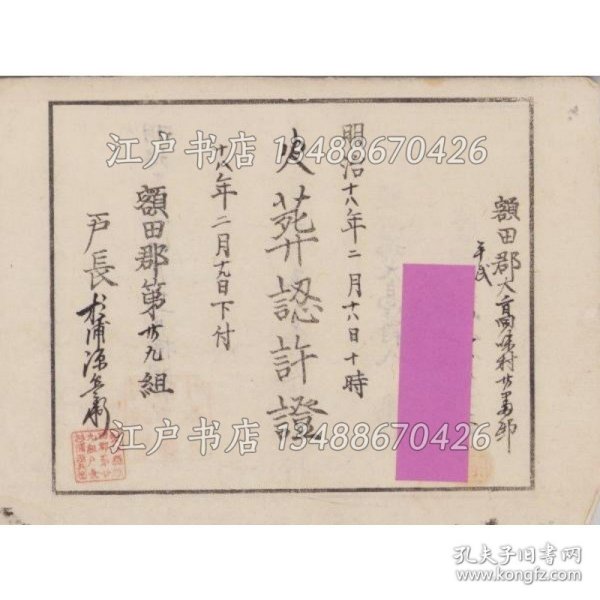 額田郡大髙味村廿四番邸
平民
明治十八年二月十六日十時
火葬認許證
十八年二月十九日下付
額田郡第廿九組
戸長 松浦源兵衛
江户书店 13488670426
江户书店 13488670426
江户书店 13488670426
孔夫子旧书网
www.kongfz.com